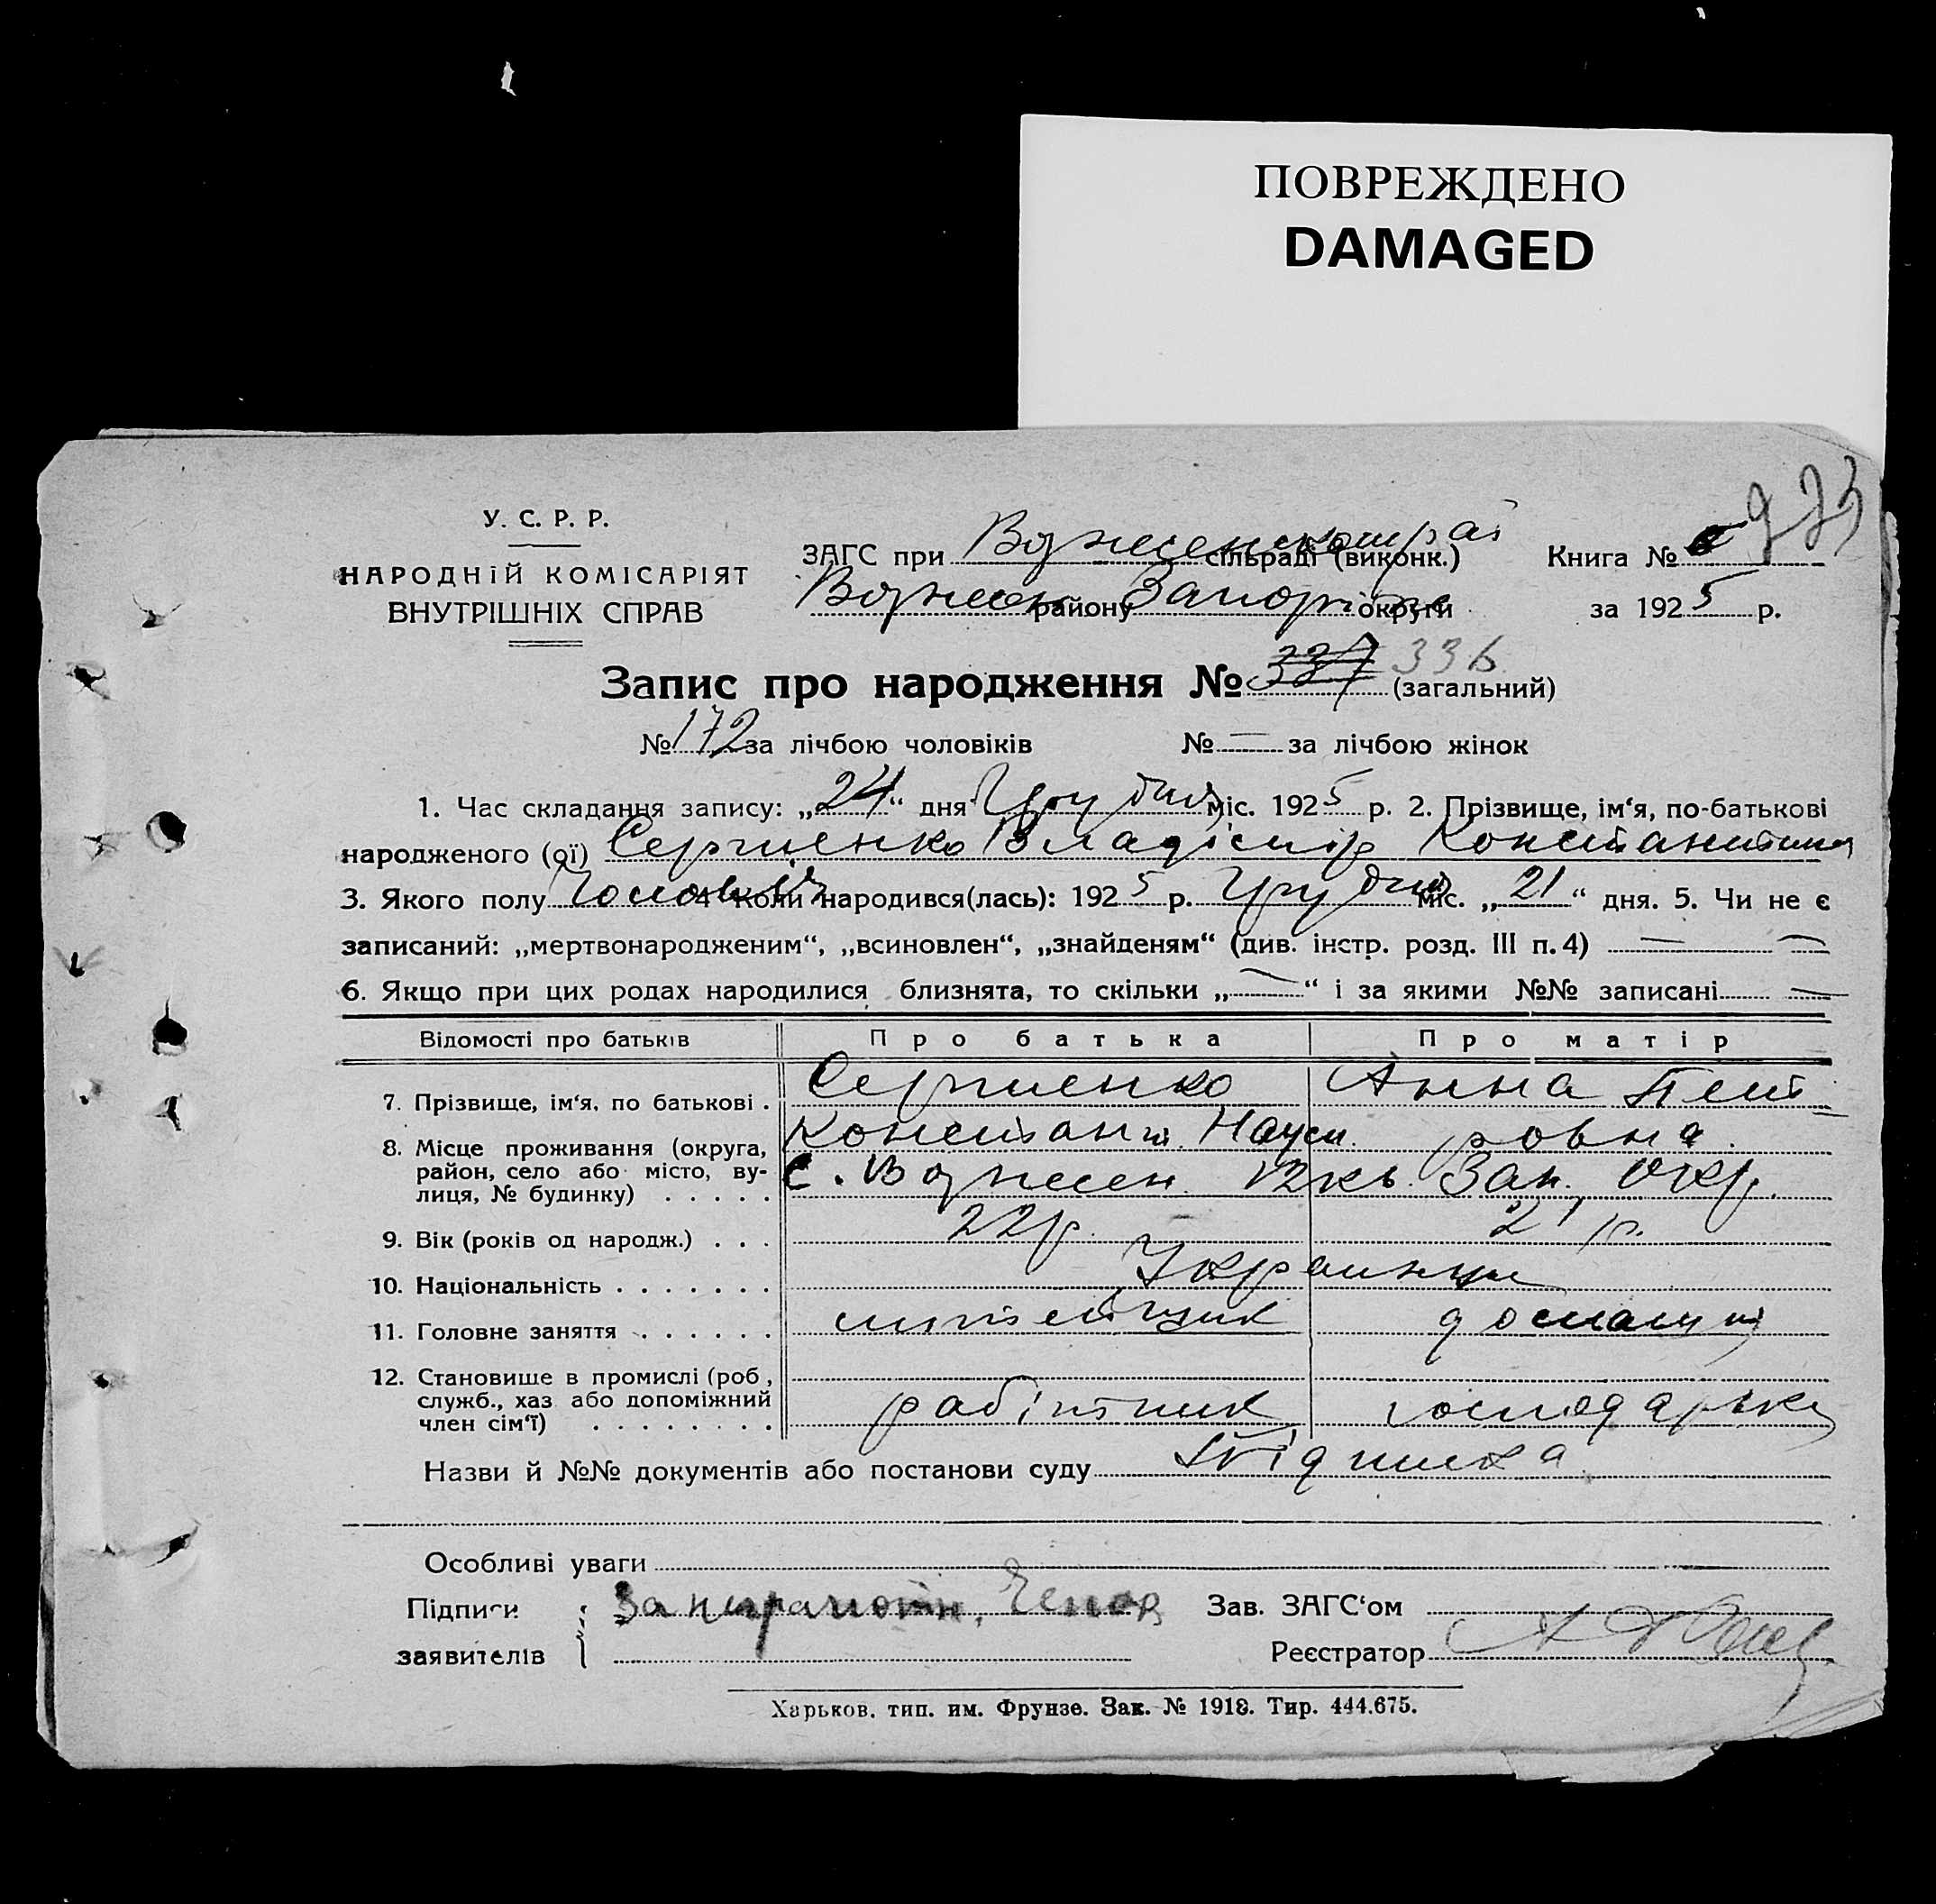 ПОВРЕЖДЕНО
DAMAGED
973
У. С. Р. Р.
НАРОДНІЙ КОМІСАРІЯТ
ВНУТРІШНІХ СПРАВ
ЗАГС при сільраді (виконк.)
району Запоріж округи
Книга №
за 1925 р.
Запис про народження № 337 336 (загальний)
№ 172 за лічбою чоловіків № — за лічбою жінок
1. Час складання запису: „24“ дня Грудня міс. 1925 р. 2. Прізвище, ім‘я, по-батькові
народженого (ої) Сергиенко Владімір Константинов
3. Якого полу 4 Коли народився(лась): 1925 р. Грудня міс. „21“ дня. 5. Чи не є
записаний: „мертвонародженим“, „всиновлен“, „знайденям“ (див. інстр. розд. III п. 4) — —
6. Якщо при цих родах народилися близнята, то скільки „—“ і за якими №№ записані —
Відомості про батьків Про батька Про матір
7. Прізвище, ім‘я, по батькові . Сергиенко Анна Пет
Констант. Наум. ровна.
8. Місце проживання (округа,
район, село або місто, ву-
лиця, № будинку) . . . . . С. Вознесен. 12 кв. Зап. Окр.
9. Вік (років од народж.) . . . 22 р. 21 р.
10. Національність . . . . . . . Украинци
11. Головне заняття . . . . . .
12. Становище в промислі (роб,
служб., хаз або допоміжний
член сім‘ї) . . . . . . . . рабітник господарька
Назви й №№ документів або постанови суду
Особливі уваги
Підписи
заявителів
За
Зав. ЗАГС‘ом
Реєстратор
Харьков, тип. им. Фрунзе. Зак. № 1918. Тир. 444.675.